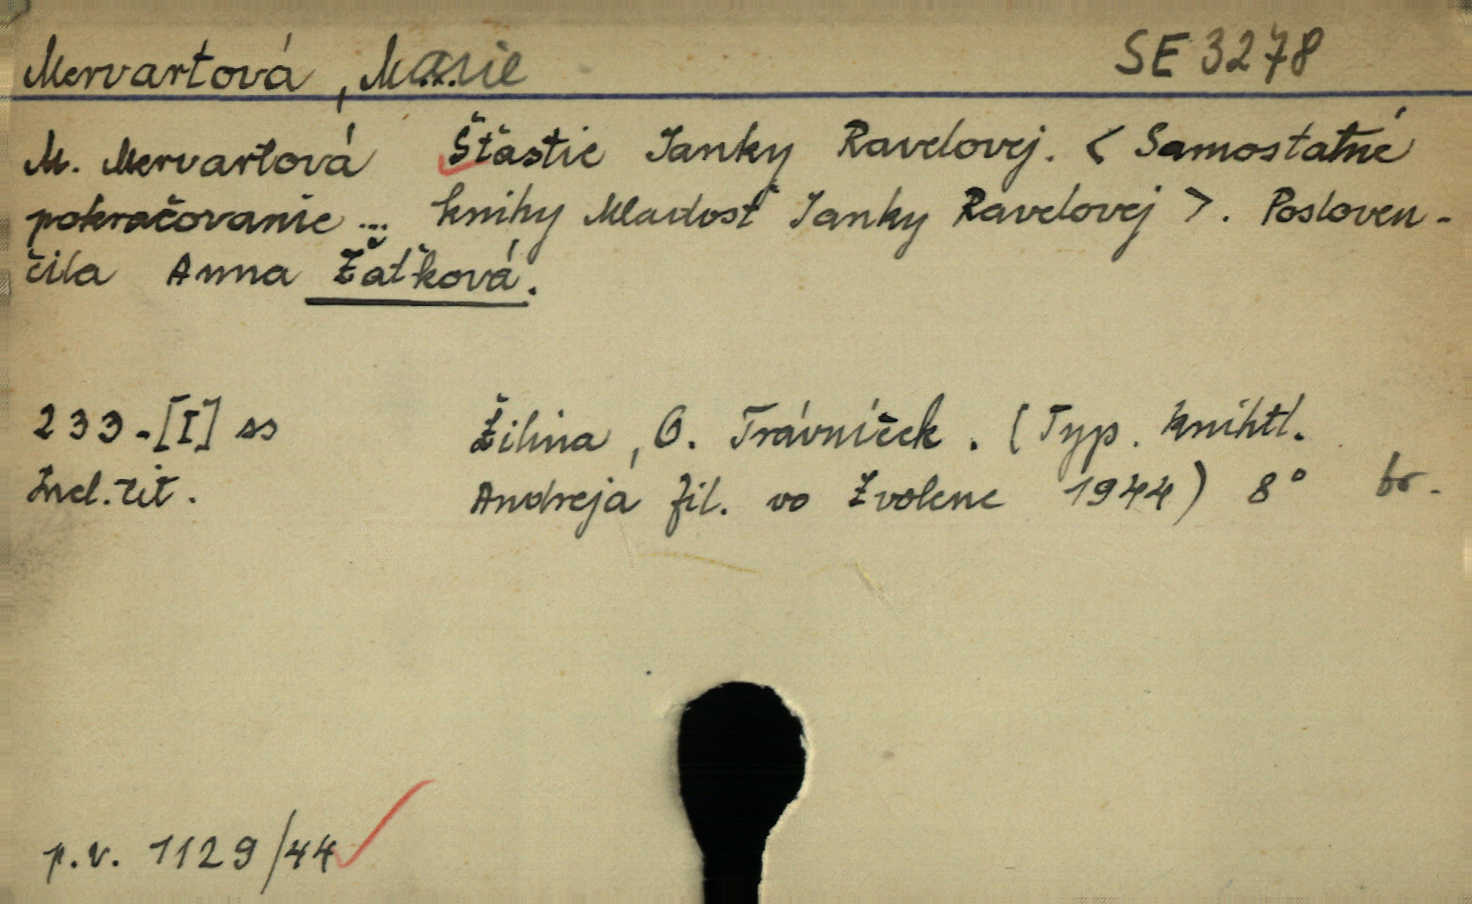 Mervartová, Marie SE 3278
M. Mervartová Šťastie Janky Ravelovej. < Samostatné
pokračovanie ... knihy Mladosť Janky Ravelovej >. Posloven-
čila Anna Žaťková.
233-[I] ss Žilina, O. Trávníček. (Typ. Kníhtl.
Incl. tit. Andreja fil. vo Zvolene 1944) 8° br.
p.v. 1129/44